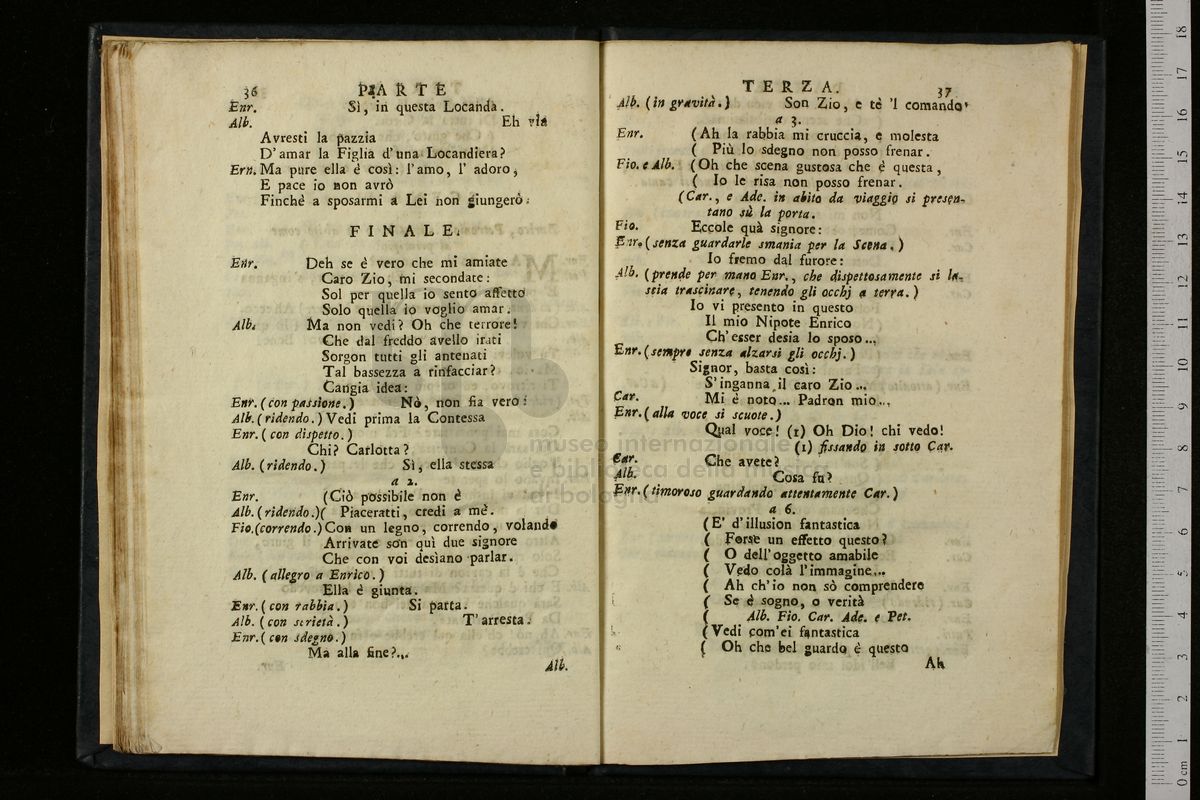 36 PARTE
Enr. Sì, in questa Locanda.
Alb. Eh via
Avresti la pazzia
D'amar la Figlia d'una Locandiera?
Ern. Ma pure ella è così: l'amo, l' adoro,
E pace io non avrò
Finchè a sposarmi a Lei non giungerò.
FINALE.
Enr. Deh se è vero che mi amiate
Caro Zio, mi secondate:
Sol per quella io sento affetto
Solo quella io voglio amar.
Alb. Ma non vedi? Oh che terrore!
Che dal freddo avello irati
Sorgon tutti gli antenati
Tal bassezza a rinfacciar?
Cangia idea:
Enr. (con passione.) Nò, non fia vero:
Alb. (ridendo.) Vedi prima la Contessa
Enr. (con dispetto.)
Chi? Carlotta?
Alb. (ridendo.) Sì, ella stessa
a 2.
Enr. (Ciò possibile non è
Alb. (ridendo.)( Piaceratti, credi a mè.
Fio. (correndo.) Con un legno, correndo, volando
Arrivate son quì due signore
Che con voi desìano parlar.
Alb. (allegro a Enrico.)
Ella è giunta.
Enr. (con rabbia.) Si parta.
Alb. (con serietà.) T'arresta.
Enr. (con sdegno.)
Ma alla fine?...
Alb.
TERZA. 37
Alb. (in gravità.) Son Zio, e tè 'l comando.
a 3.
Enr. (Ah la rabbia mi cruccia, e molesta
( Più lo sdegno non posso frenar.
Fio. e Alb. (Oh che scena gustosa che è questa,
( Io le risa non posso frenar.
(Car., e Ade. in abito da viaggio si presen-
tano sù la porta.
Fio. Eccole quà signore:
Enr. (senza guardarle smania per la Scena.)
Io fremo dal furore:
Alb. (prende per mano Enr., che dispettosamente si la-
scia trascinare, tenendo gli occhj a terra.)
Io vi presento in questo
Il mio Nipote Enrico
Ch'esser desia lo sposo...
Enr. (sempre senza alzarsi gli occhj.)
Signor, basta così:
S'inganna il caro Zio...
Car. Mi è noto... Padron mio...
Enr. (alla voce si scuote.)
Qual voce! (1) Oh Dio! chi vedo!
(1) fissando in sotto Car.
Car. Che avete?
Alb. Cosa fu?
Enr. (timoroso guardando attentamente Car.)
a 6.
(E' d'illusion fantastica
( Forse un effetto questo?
( O dell'oggetto amabile
( Vedo colà l'immagine...
( Ah ch'io non sò comprendere
( Se è sogno, o verità
( Alb. Fio. Car. Ade. e Pet.
(Vedi com'ei fantastica
( Oh che bel guardo è questo
Ah
museo internazionale
e biblioteca della musica
di bologna
0 cm 1 2 3 4 5 6 7 8 9 10 11 12 13 14 15 16 17 18